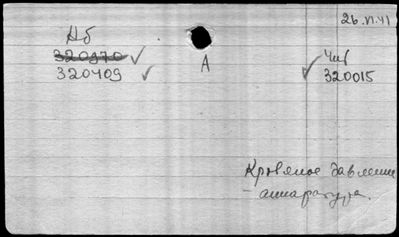 26.VI.41
Нб
320970
320409
А
Чив
320015
Кровяное давление
- аппаратура.